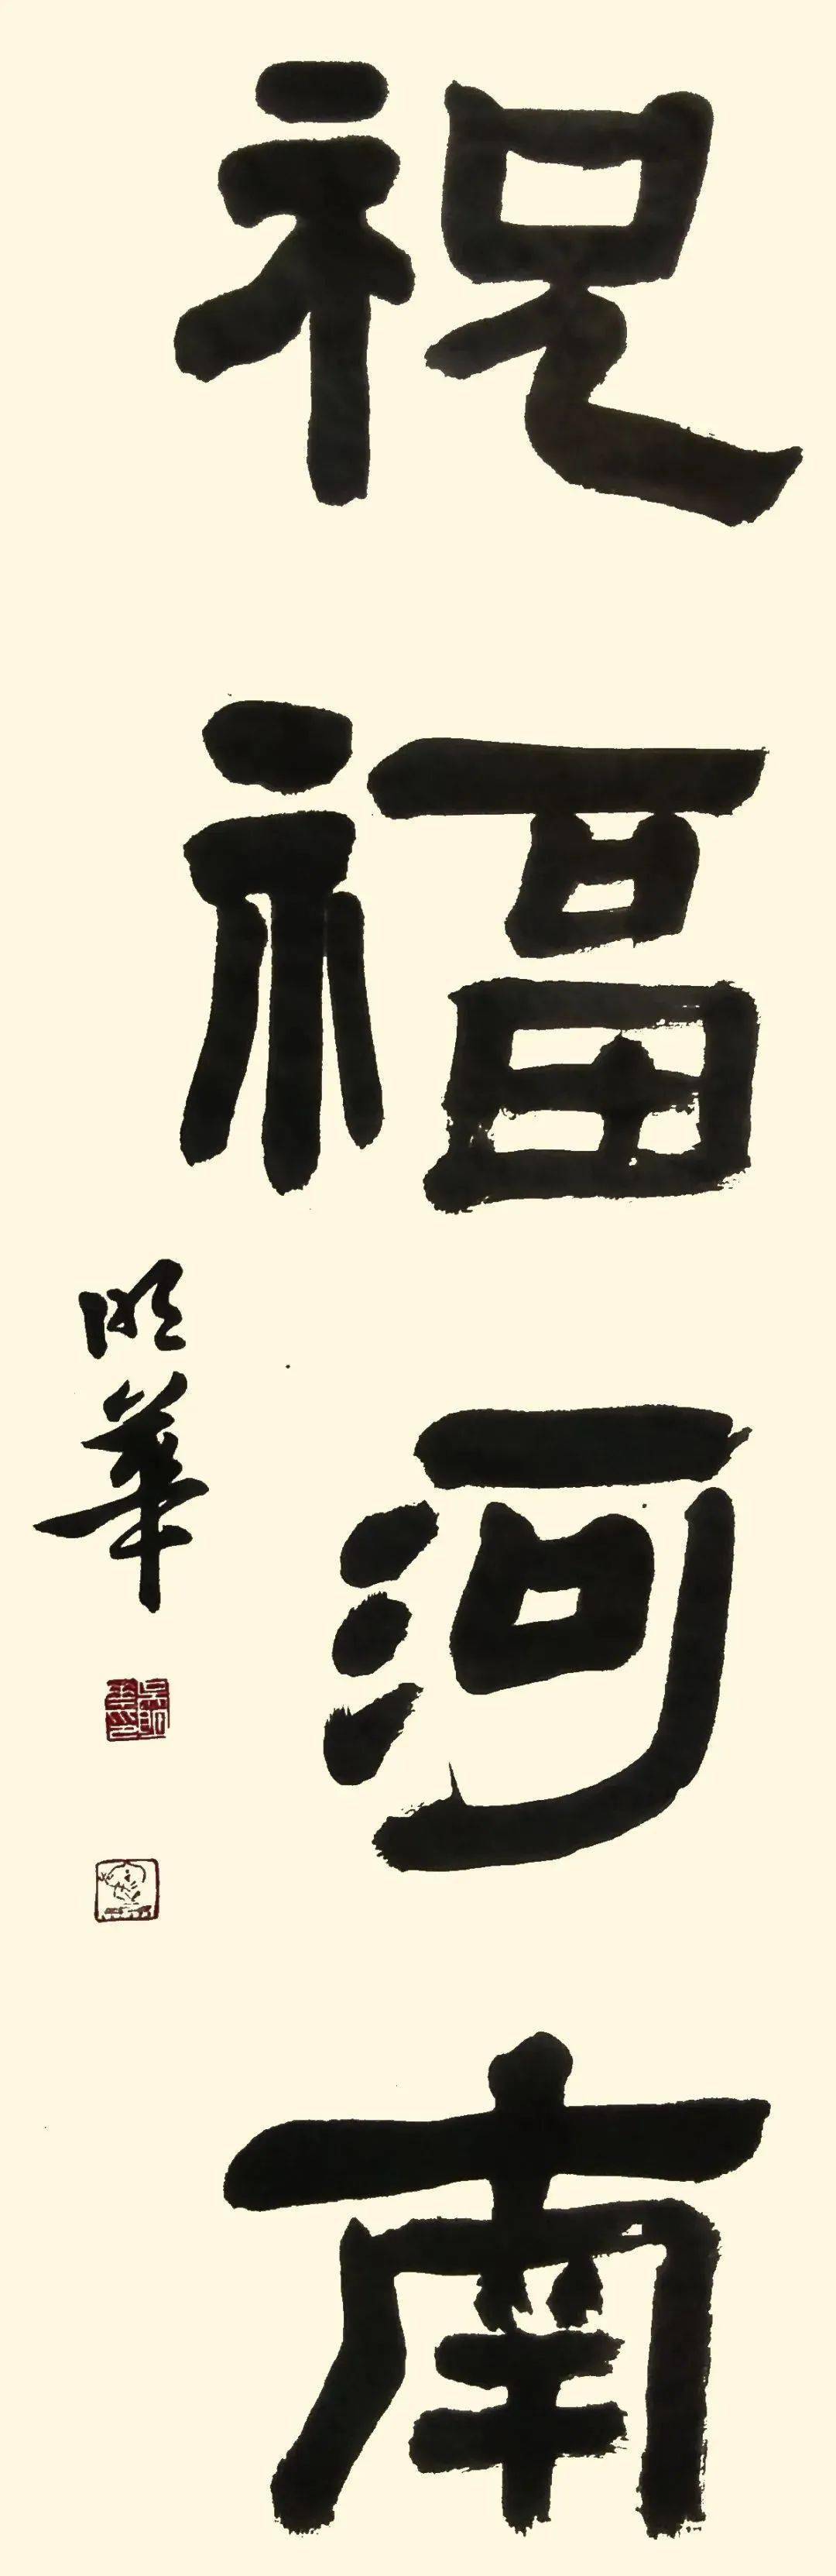 祝福河南
明華